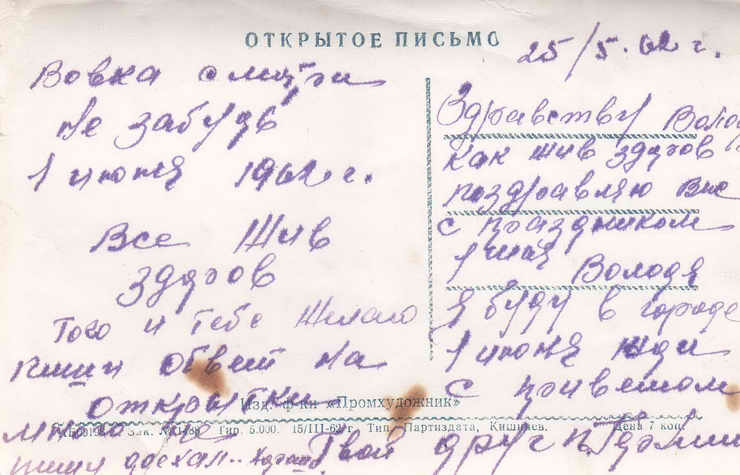 ОТКРЫТОЕ ПИСЬМО
25/5.62 г.
Вовка смотри
не забудь
1 июня 1962 г.
Все жив
здоров
того и тебе желаю
пиши ответ на
открытки
пиши доехал.. хорошо
Здравству Волод
как жив здоров
поздравляю вас
с праздником
1 мая Володя
я буду в городе
1 июня жди
с приветом
Твой друг
Изд. ф-ки «Промхудожник»
Зак. № Тир. 5.000. 15/III-62 г. Тип. Партиздата, Кишинев. Цена 7 коп.